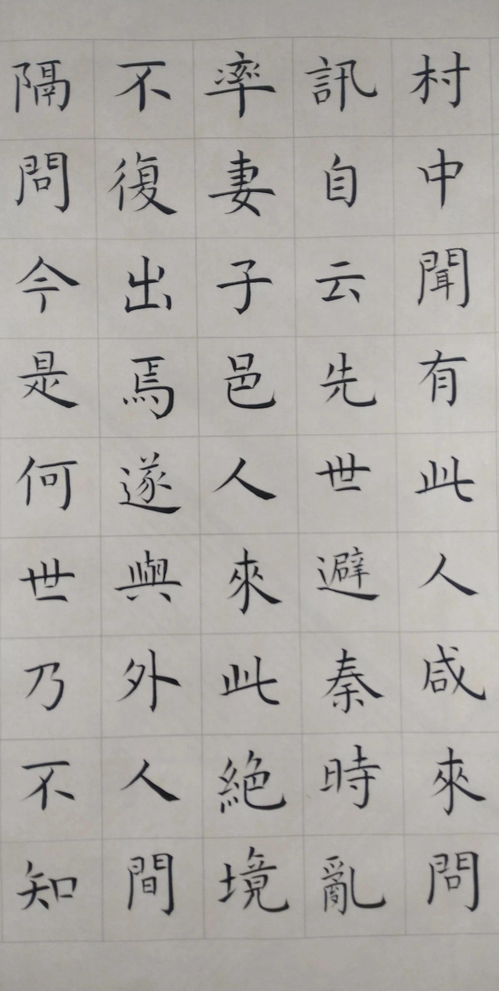 村中聞有此人咸來問
訊自云先世避秦時亂
率妻子邑人來此絕境
不復出焉遂與外人間
隔問今是何世乃不知